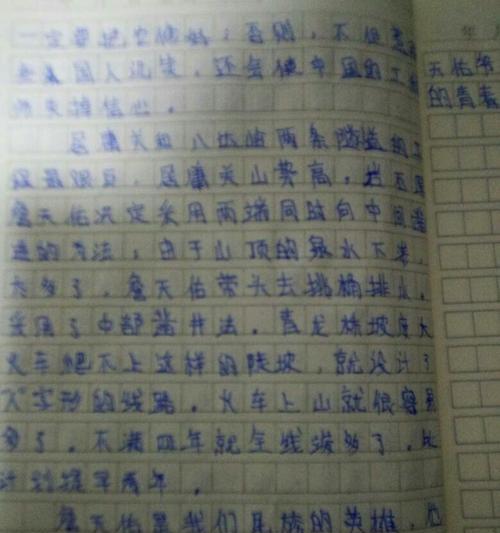 一定要把它修好；否则，不但惹
国人讥笑，还会使中国的工
失掉信心。
居庸关和八达岭两条隧道的工
最艰巨。居庸关山势高，岩
詹天佑决定采用两端同时向中间凿
进的方法；由于山顶的泉水下来，
大多了，詹天佑带头去挑桶排水。
采用了中部凿井法。青龙桥坡度大
火车爬不上这样的陡坡，就设计了
人字形的线路。火车上山就很容易
多了。不满四年就全线竣工了，比
计划提早两年。
詹天佑是我们民族的英雄，
年
天佑
的青春